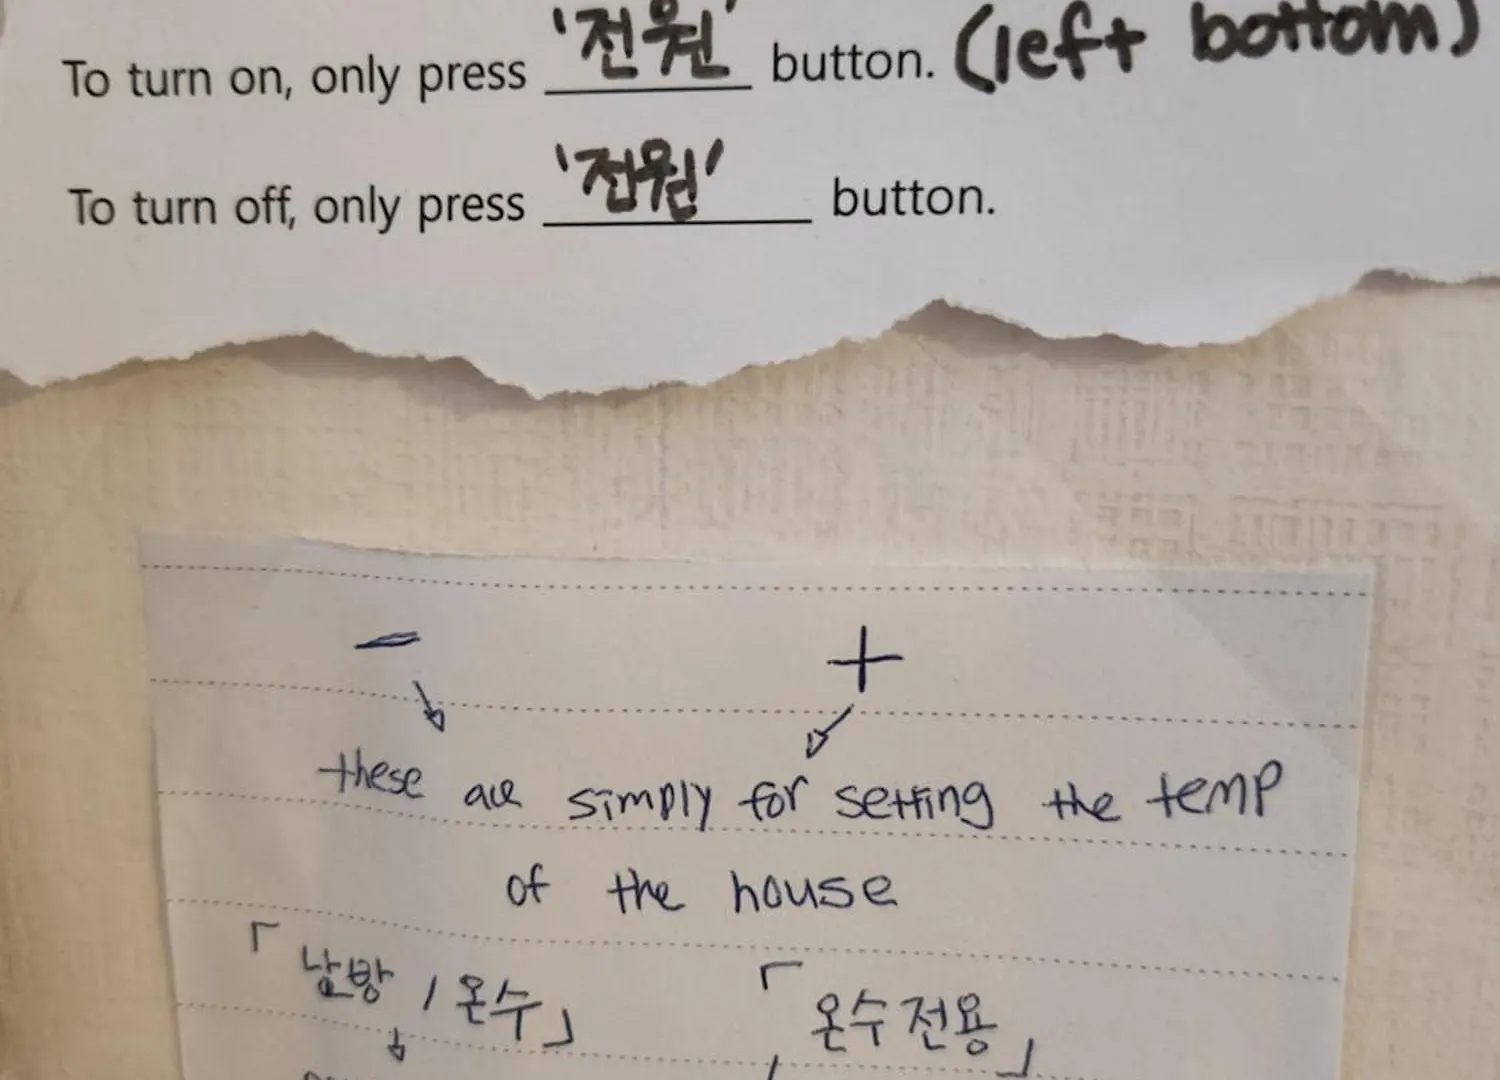 To turn on, only press '전원' button. (left bottom)
To turn off, only press '전원' button.
- +
these are simply for setting the temp
of the house
「난방 / 온수」 「온수전용」